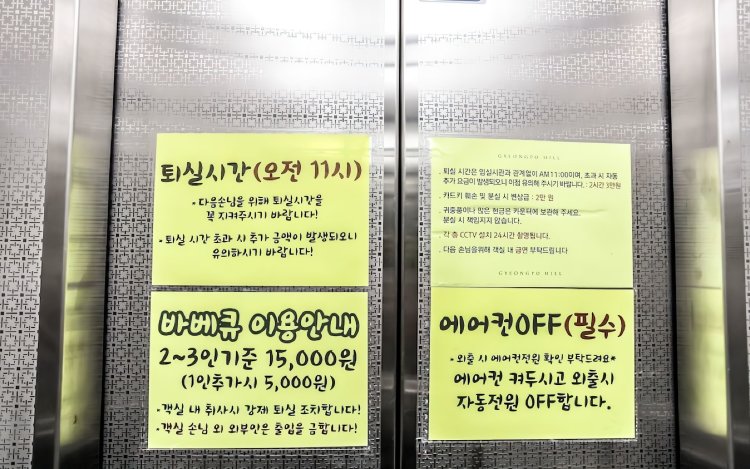 퇴실시간(오전 11시)
*다음손님을 위해 퇴실시간을
꼭 지켜주시기 바랍니다!
*퇴실 시간 초과 시 추가 금액이 발생되오니
유의하시기 바랍니다!
바베큐 이용안내
2~3인기준 15,000원
(1인추가시 5,000원)
*객실 내 취사시 강제 퇴실 조치합니다!
*객실 손님 외 외부인은 출입을 금합니다!
GYEONGPO HILL
퇴실 시간은 입실시간과 관계없이 AM11:00이며, 초과 시 자동
추가 요금이 발생되오니 이점 유의해 주시기 바랍니다. : 2시간 3만원
. 카드키 훼손 및 분실 시 변상금 : 2만 원
. 귀중품이나 많은 현금은 카운터에 보관해 주세요.
분실 시 책임지지 않습니다.
. 각 층 CCTV 설치 24시간 촬영됩니다.
. 다음 손님을위해 객실 내 금연 부탁드립니다
GYEONGPO HILL
에어컨OFF(필수)
*외출 시 에어컨전원 확인 부탁드려요*
에어컨 켜두시고 외출시
자동전원 OFF합니다.